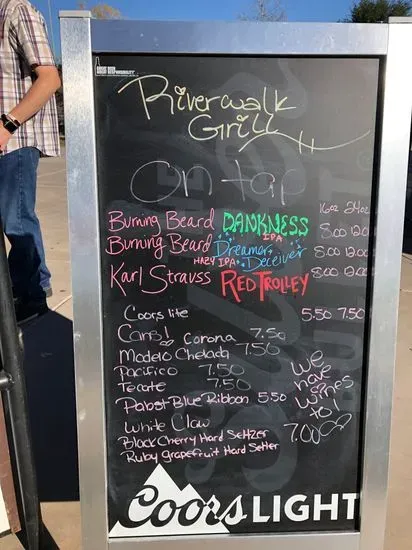 Riverwalk
Grill
On tap
16oz 24oz
Burning Beard DANKNESS IPA 8.00 12.00
Burning Beard Dreamer Deceiver HAZY IPA 8.00 12.00
Karl Strauss RED TROLLEY 8.00 12.00
Coors lite 5.50 7.50
Cans!
Corona 7.50
Modelo Chelada 7.50
Pacifico 7.50
Tecate 7.50
Pabst Blue Ribbon 5.50
White Claw
Black Cherry Hard Seltzer 7.00
Ruby grapefruit Hard Seltter
We
have
wines
to!
Coors LIGHT